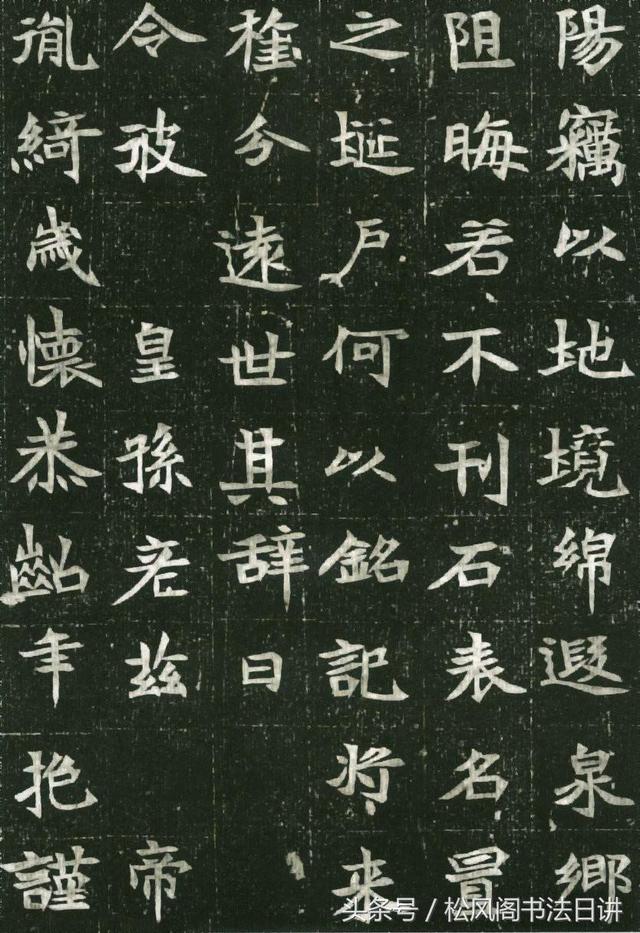 陽竊以地境綿遐泉鄉
阻晦若不刊石表名冒
之埏戶何以銘記将来
分遠世其辞曰
令
皇孫茲
帝
胤綺歲懷恭齠年挹謹
头条号 / 松风阁书法日讲